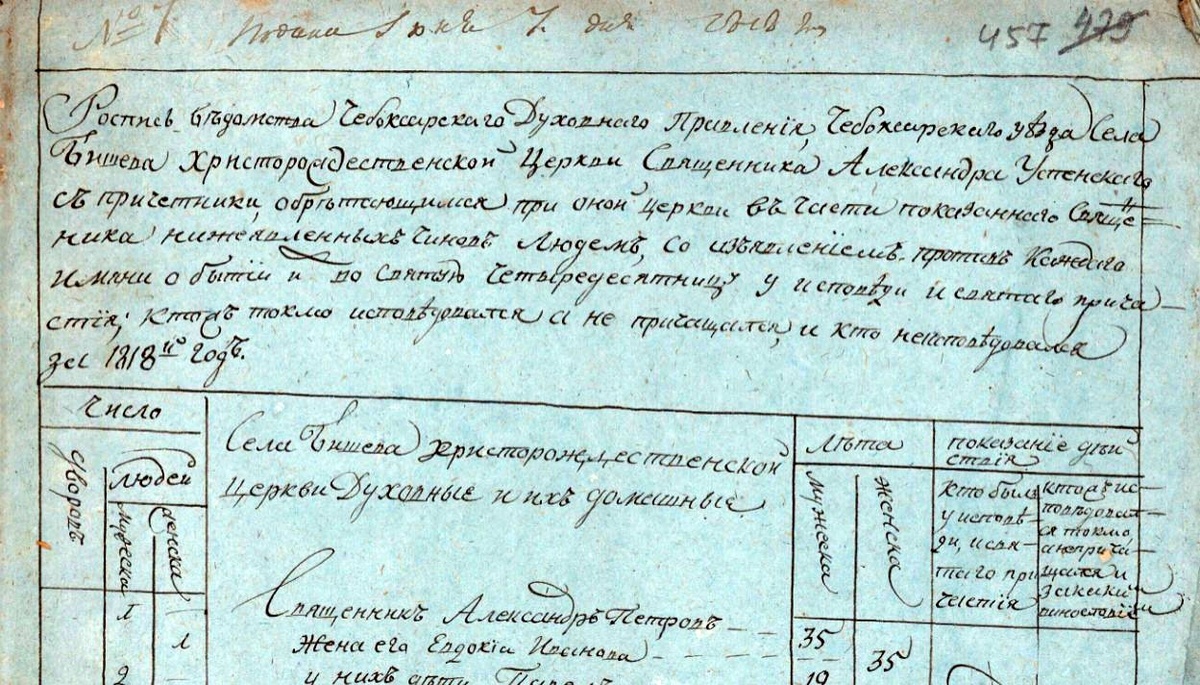 № 7 Подана Іюня 7. дня 1818 г.
457 479
Роспись вѣдомства Чебоксарскаго Духовнаго Правленія, Чебоксарскаго уѣзда Села
Бишева Христорождественской Церкви Священника Александра Успенскаго
съ причетники, обрѣтающимся при оной церкви въ части показаннаго Свяще=
ника нижеявленныхъ чиновъ людемъ, со изъявленіемъ противъ Каждаго
имяни о бытіи и во святую четыредесятницу у исповѣди и святаго прича-
стія; ктожъ токмо исповѣдовался а не причащался, и кто неисповѣдовался
за 1818й Годъ.
Число
дворовъ
Людей
мужеска
женска
Села Бишева христорождественской
Церкви Духовные и ихъ домашныя
Лѣта
мужеска
женска
показаніе дѣй
ствія
Кто былъ
у исповѣ-
ди, и свя-
таго при
частія
ктожъ ис-
повѣдовал-
ся токмо
анеприча-
щался и
закакимъ
виновствіемъ
1 Священникъ Александръ Петровъ 35
1 Жена его Евдокія Иванова 35
2 у нихъ дѣти Павелъ 19